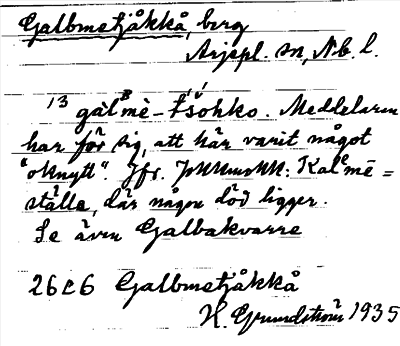 Galbmetjåkkå, berg
Arjepl. sn, Nb. l.
13 gàlᵇmè-tšohko. Meddelaren
har för sig, att här varit något
"oknytt". Jfr. JukkasKK: Kalᵉmē=
ställe, där någon död ligger.
Se även Galbakvarre
26 C 6 Galbmetjåkkå
H. Grundström 1935